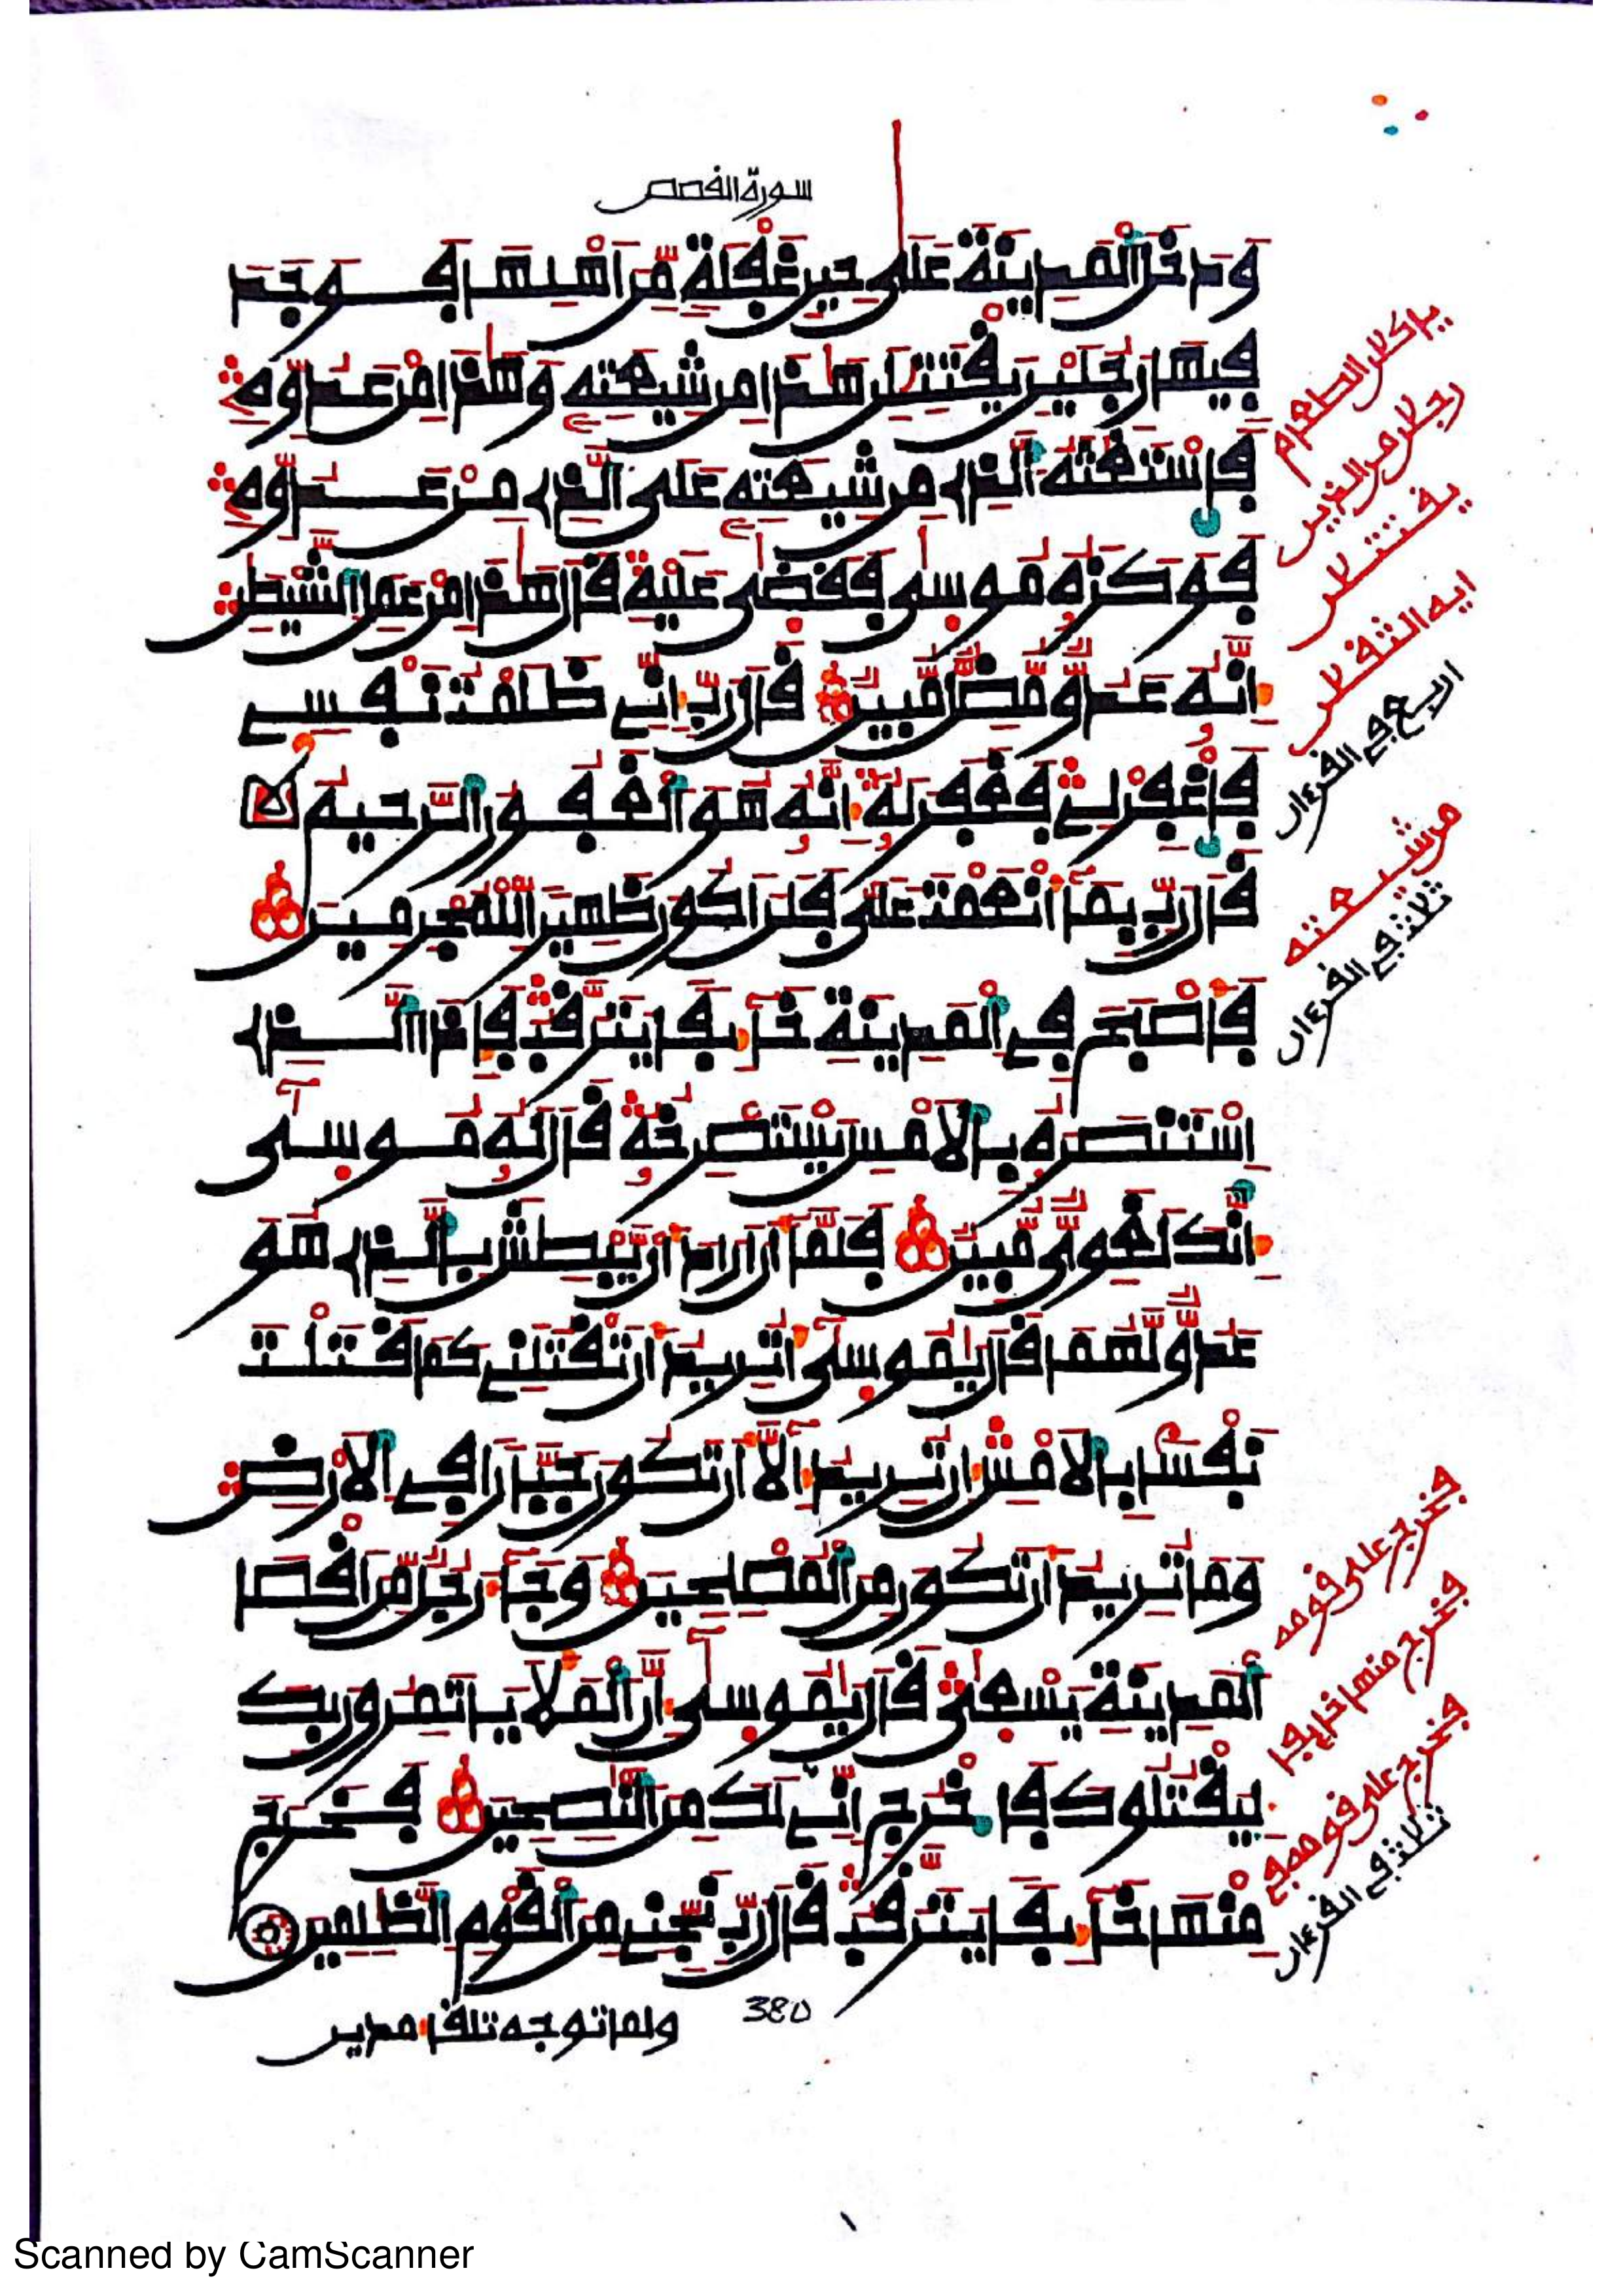 سورة الفصص
وَدَخَلَ اَ۬لْمَدِينَةَ عَلَىٰ حِينِ غَفْلَةٖ مِّنَ اَهْلِهَا فَوَجَدَ
فِيهَا رَجُلَيْنِ يَقْتَتِلَٰنِ هَٰذَا مِن شِيعَتِهِۦ وَهَٰذَا مِنْ عَدُوِّهِۦ
فَاسْتَغَٰثَهُ اُ۬لذِے مِن شِيعَتِهِۦ عَلَى اَ۬لذِے مِنْ عَدُوِّهِۦ
فَوَكَزَهُۥ مُوسَىٰ فَقَضَىٰ عَلَيْهِ قَالَ هَٰذَا مِنْ عَمَلِ اِ۬لشَّيْطَٰنِ
إِنَّهُۥ عَدُوّٞ مُّضِلّٞ مُّبِينٞ قَالَ رَبِّ إِنِّے ظَلَمْتُ نَفْسِے
فَاغْفِرْ لِے فَغَفَرَ لَهُۥ إِنَّهُۥ هُوَ اَ۬لْغَفُورُ اُ۬لرَّحِيمُ
قَالَ رَبِّ بِمَا أَنْعَمْتَ عَلَيَّ فَلَنَ اَكُونَ ظَهِيراٗ لِّلْمُجْرِمِينَ
فَأَصْبَحَ فِے اِ۬لْمَدِينَةِ خَآئِفاٗ يَتَرَقَّبُ فَإِذَا اَ۬لذِے
اِ۪سْتَنصَرَهُۥ بِالَامْسِ يَسْتَصْرِخُهُۥ قَالَ لَهُۥ مُوسَىٰٓ
إِنَّكَ لَغَوِيّٞ مُّبِينٞ فَلَمَّا أَنَ اَرَادَ أَنْ يَّبْطِشَ بِالذِے هُوَ
عَدُوّٞ لَّهُمَا قَالَ يَٰمُوسَىٰٓ أَتُرِيدُ أَن تَقْتُلَنِے كَمَا قَتَلْتَ
نَفْساَۢ بِالَامْسِ إِن تُرِيدُ إِلَّآ أَن تَكُونَ جَبَّاراٗ فِے اِ۬لَارْضِ
وَمَا تُرِيدُ أَن تَكُونَ مِنَ اَ۬لْمُصْلِحِينَ وَجَآءَ رَجُلٞ مِّنَ اَقْصَا
اَ۬لْمَدِينَةِ يَسْعَىٰ قَالَ يَٰمُوسَىٰٓ إِنَّ اَ۬لْمَلَأَ يَاتَمِرُونَ بِكَ
لِيَقْتُلُوكَ فَاخْرُجِ اِنِّے لَكَ مِنَ اَ۬لنَّٰصِحِينَ فَخَرَجَ
مِنْهَا خَآئِفاٗ يَتَرَقَّبُ قَالَ رَبِّ نَجِّنِے مِنَ اَ۬لْقَوْمِ اِ۬لظَّٰلِمِينَ
380
ولما توجه تلقاء مدين
ياكلن الطعام
رجلن من الذين
يقتتلن
ايه الثقلن
اربع في القرءان
من شيعته
ثلاث في القرءان
فخرج على قومه
فخرج منها خايفا
فخرج على قومه في
ثلاث في القرءان
Scanned by CamScanner